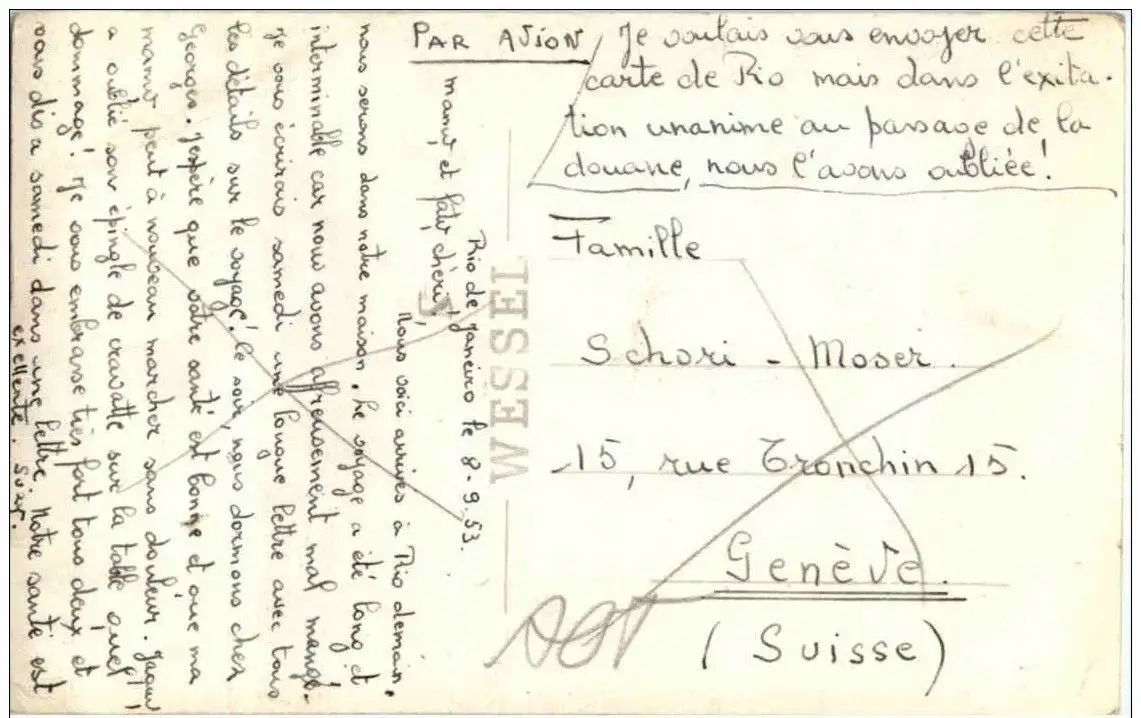 PAR AVION
Je voulais vous envoyer cette
carte de Rio mais dans l'exita-
tion unanime au passage de la
douane, nous l'avons oubliée!
Famille
Schori - Moser.
15, rue Tronchin 15.
Genève.
(Suisse)
WESSEL
Rio de Janeiro le 8-9-53.
mamy et faty chéris!
Nous voici arrivés à Rio demain,
nous serons dans notre maison. Le voyage a été long et
interminable car nous avons affreusement mal mangé.
Je vous écrirais samedi une longue lettre avec tous
les détails sur le voyage! Ce soir, nous dormons chez
Georges. J'espère que votre santé est bonne et que ma
mamy peut à nouveau marcher sans douleur. Jaquy
a oublié son épingle de cravatte sur la table quel
dommage! Je vous embrasse très fort tous deux et
vous dis a samedi dans une lettre. Notre santé est
exellente. Suzy.